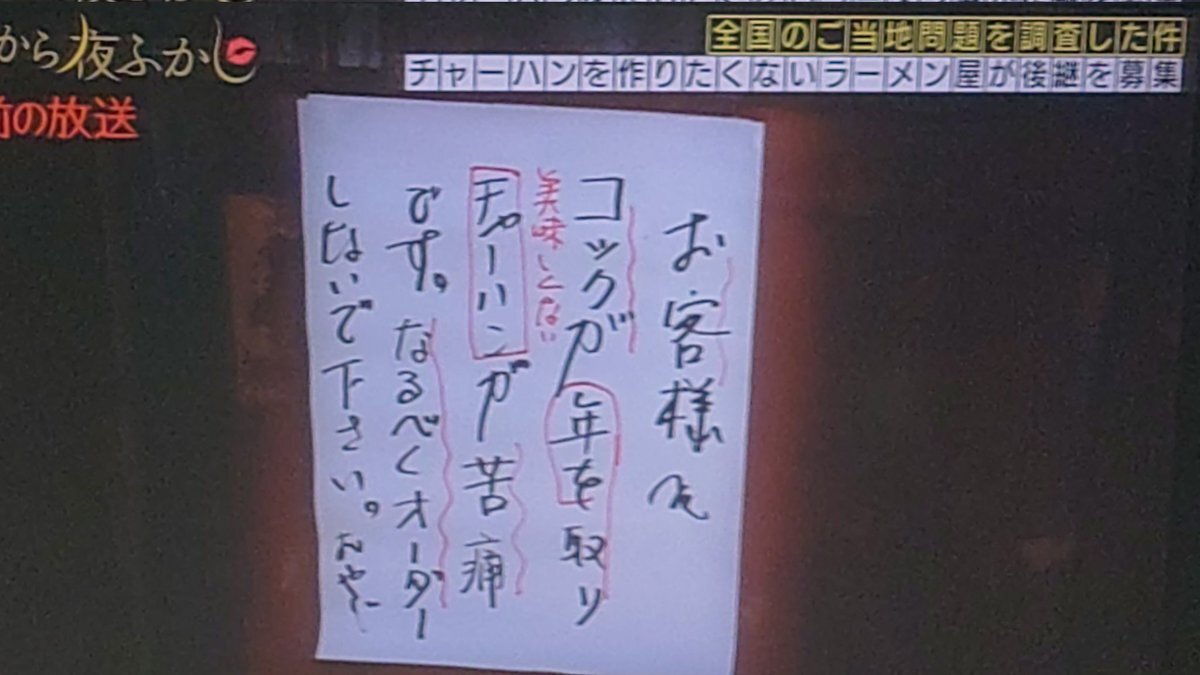 から夜ふかし
前の放送
全国のご当地問題を調査した件
チャーハンを作りたくないラーメン屋が後継を募集
お客様へ
コックが年を取り
美味しくない
チャーハンが苦痛
です。なるべくオーダー
しないで下さい。おやじ